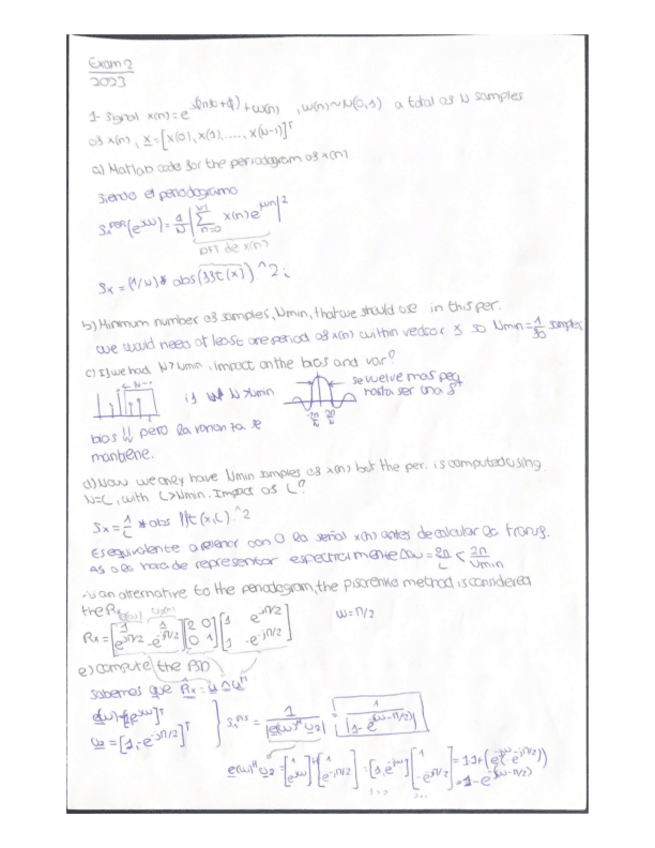 Exam 2
2023
1- Signal x(n) = e^j(n30+ϕ) + w(n) , w(n)~N(0,1) a total of N samples
of x(n), x = [x(0), x(1), ...., x(N-1)]^T
a) Matlab code for the periodogram of x(n)
Siendo el periodogramo
Sx^PER(e^jω) = 1/N |∑_{n=0}^{N-1} x(n) e^jωn|^2
DFT de x(n)
Sx = (1/N)* abs(fft(x))^2;
b) Minimum number of samples, Nmin, that we should use in this per.
we would need at least one period of x(n) within vector x so Nmin = 1/30 samples
c) If we had N>Nmin, impact on the bias and var?
if N>Nmin
se vuelve más peq
hasta ser una δ
bias ↓↓ pero la varianza se
mantiene.
d) Now we only have Nmin samples of x(n) but the per. is computed using
N=L, with L>Nmin. Impact of L?
Sx = 1/L * abs fft(x,L).^2
Es equivalente a rellenar con 0 la señal x(n) antes de calcular la transf.
As a la hora de representar espectralmente Δω = 2π/L < 2π/Nmin
an alternative to the periodogram, the Pisarenko method is considered
the Rx
Rx = [1 1; e^jπ/2 -e^-jπ/2] [2 0; 0 1] [1 e^jπ/2; 1 -e^-jπ/2]
ω = π/2
e) compute the PSD
Sabemos que Rx = U Δ U^H
e(ω) = [1 e^jω]^T
u2 = [1, -e^-jπ/2]^T
Sx^PIS = 1/|e(ω)^H u2| = 1/|1-e^j(ω-π/2)|
e(ω)^H u2 = [1; e^jω]^H [1; e^-jπ/2] = [1, e^-jω] [1; -e^jπ/2] = 1·1+(e^-jω · e^-jπ/2)
= 1-e^j(ω-π/2)